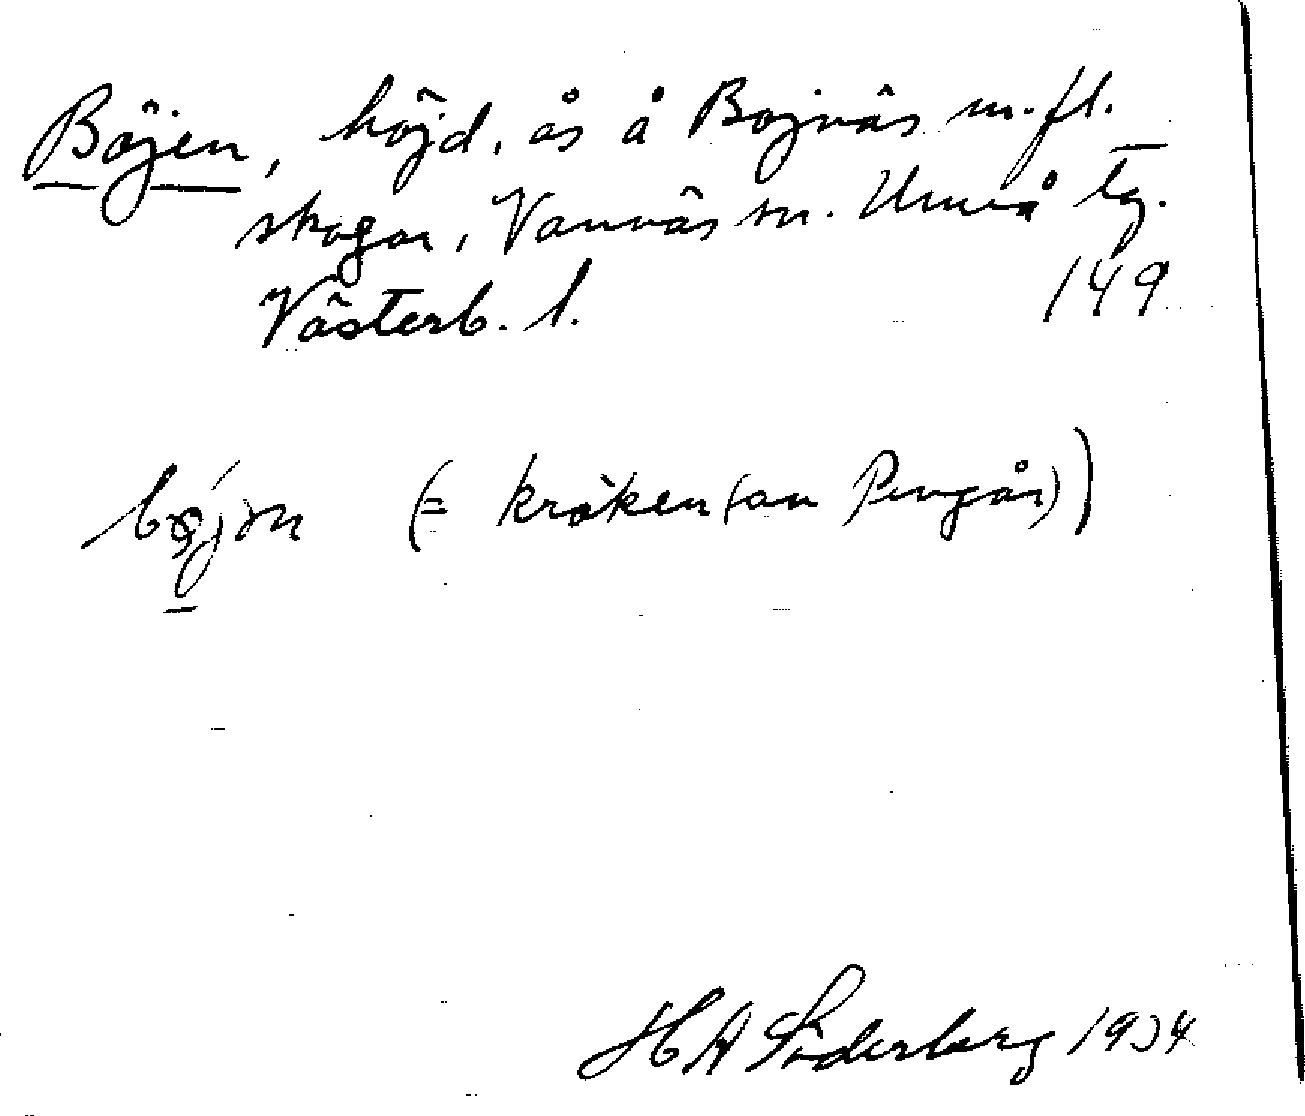 Böjen, höjd, ås å Bojnäs m. fl.
skogar, Vännäs sn. Umeå tg.
Västerb. l. 149
(= kröken (av Pengån))
H A Söderberg 1934